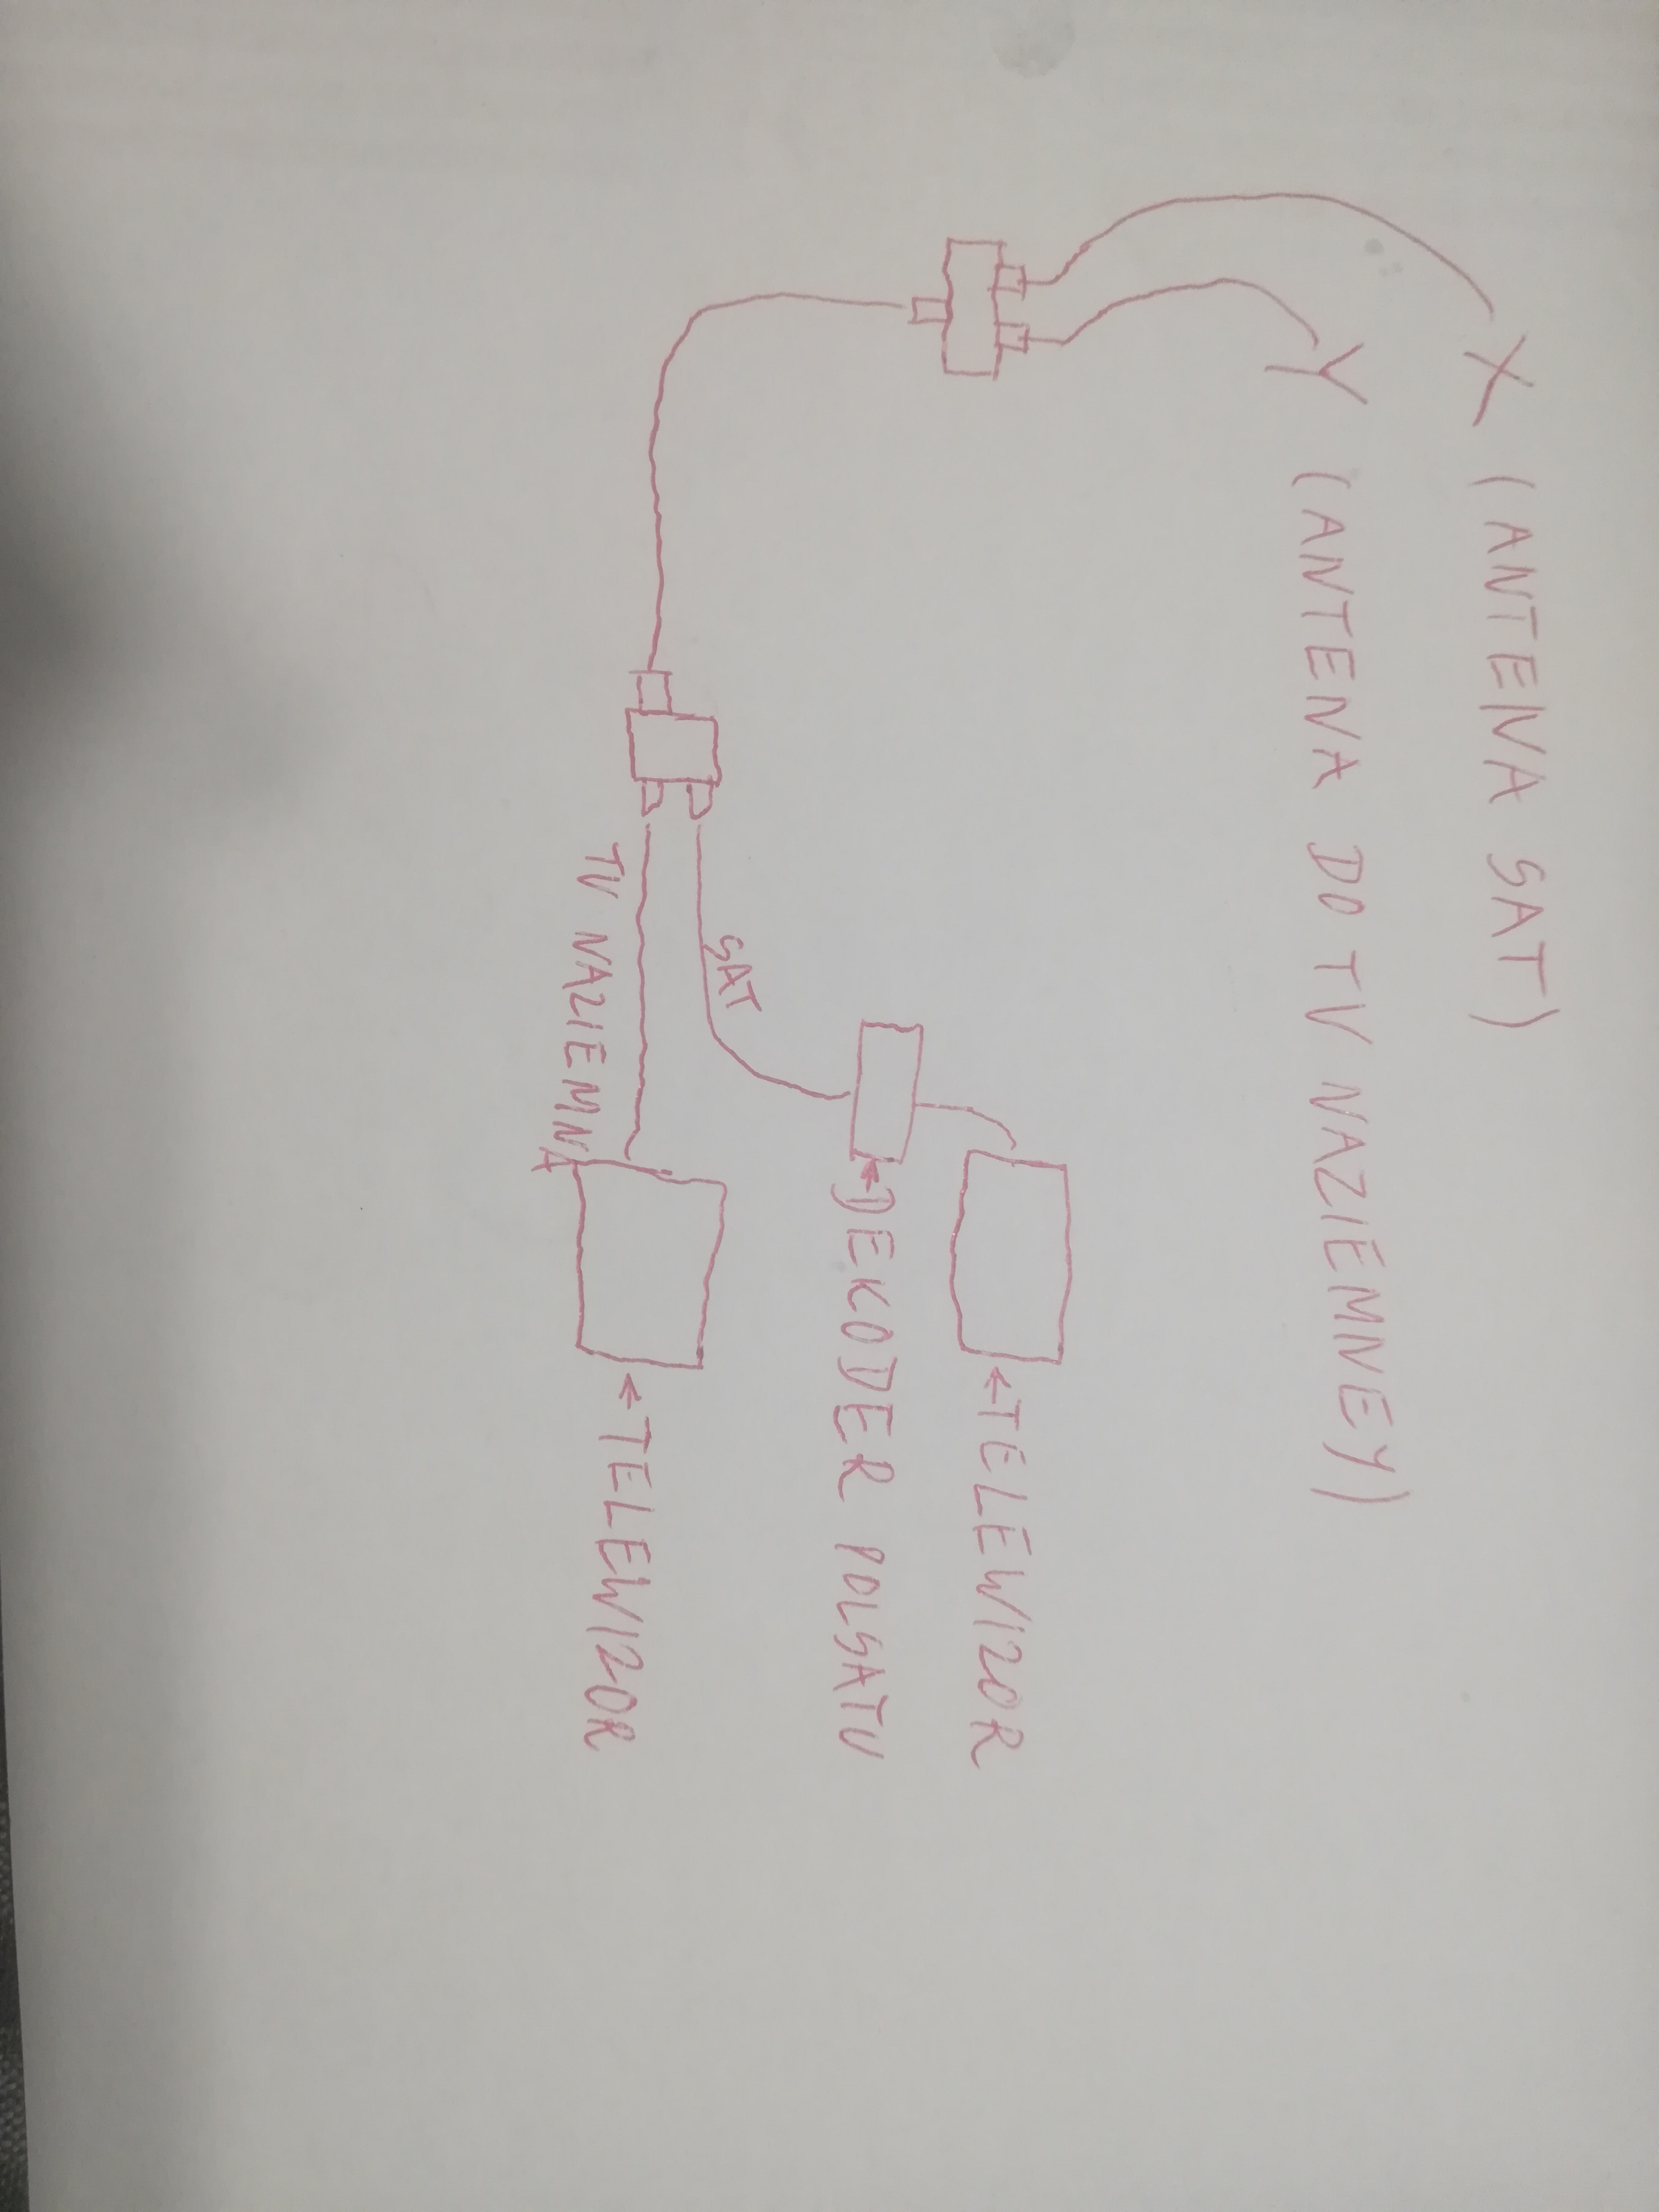 X (ANTENA SAT)
Y (ANTENA DO TV NAZIEMNEY)
←TELEWIZOR
←DEKODER POLSATU
SAT
TV NAZIEMNA
←TELEWIZOR